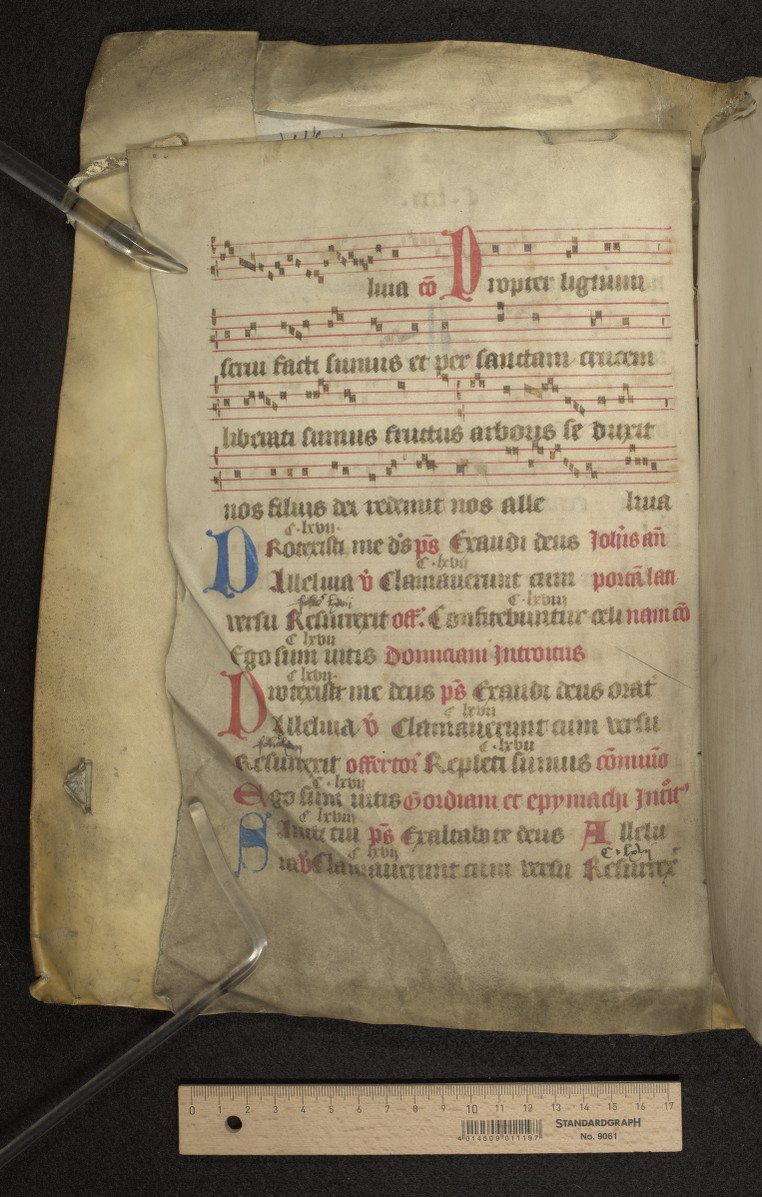 luia cō Propter lignum
serui facti sumus et per sanctam crucem
liberati sumus fructus arboris se duxit
nos filius dei redemit nos alle luia
C · lxvii ·
Protexisti me ds ps̄ Exaudi deus Joh̄is añ
C · lxvij
Alleluia v̄ Clamauerunt cum portā lati
C · lxviii
versu Resurrexit off. Confitebuntur celi nam cō
C lxvii
Ego sum uitis Domiciani Introitus
C lxvii ·
Protexisti me deus ps̄ Exaudi deus orat
C lxvii
Alleluia v̄ Clamauerunt cum versu
C · lxvii
Resurrexit offertor Repleti sumus cōmuio
C · lxvij
Ego sum uitis Gordiani et epymachi Introit
C lxviii
Sancti tui ps̄ Exaltabo te deus Allelu
C lxvij C · lxvij
ia v̄ Clamauerunt cum versu Resurrex
0 1 2 3 4 5 6 7 8 9 10 11 12 13 14 15 16 17
STANDARDGRAPH
No. 9061
4 014509 011197